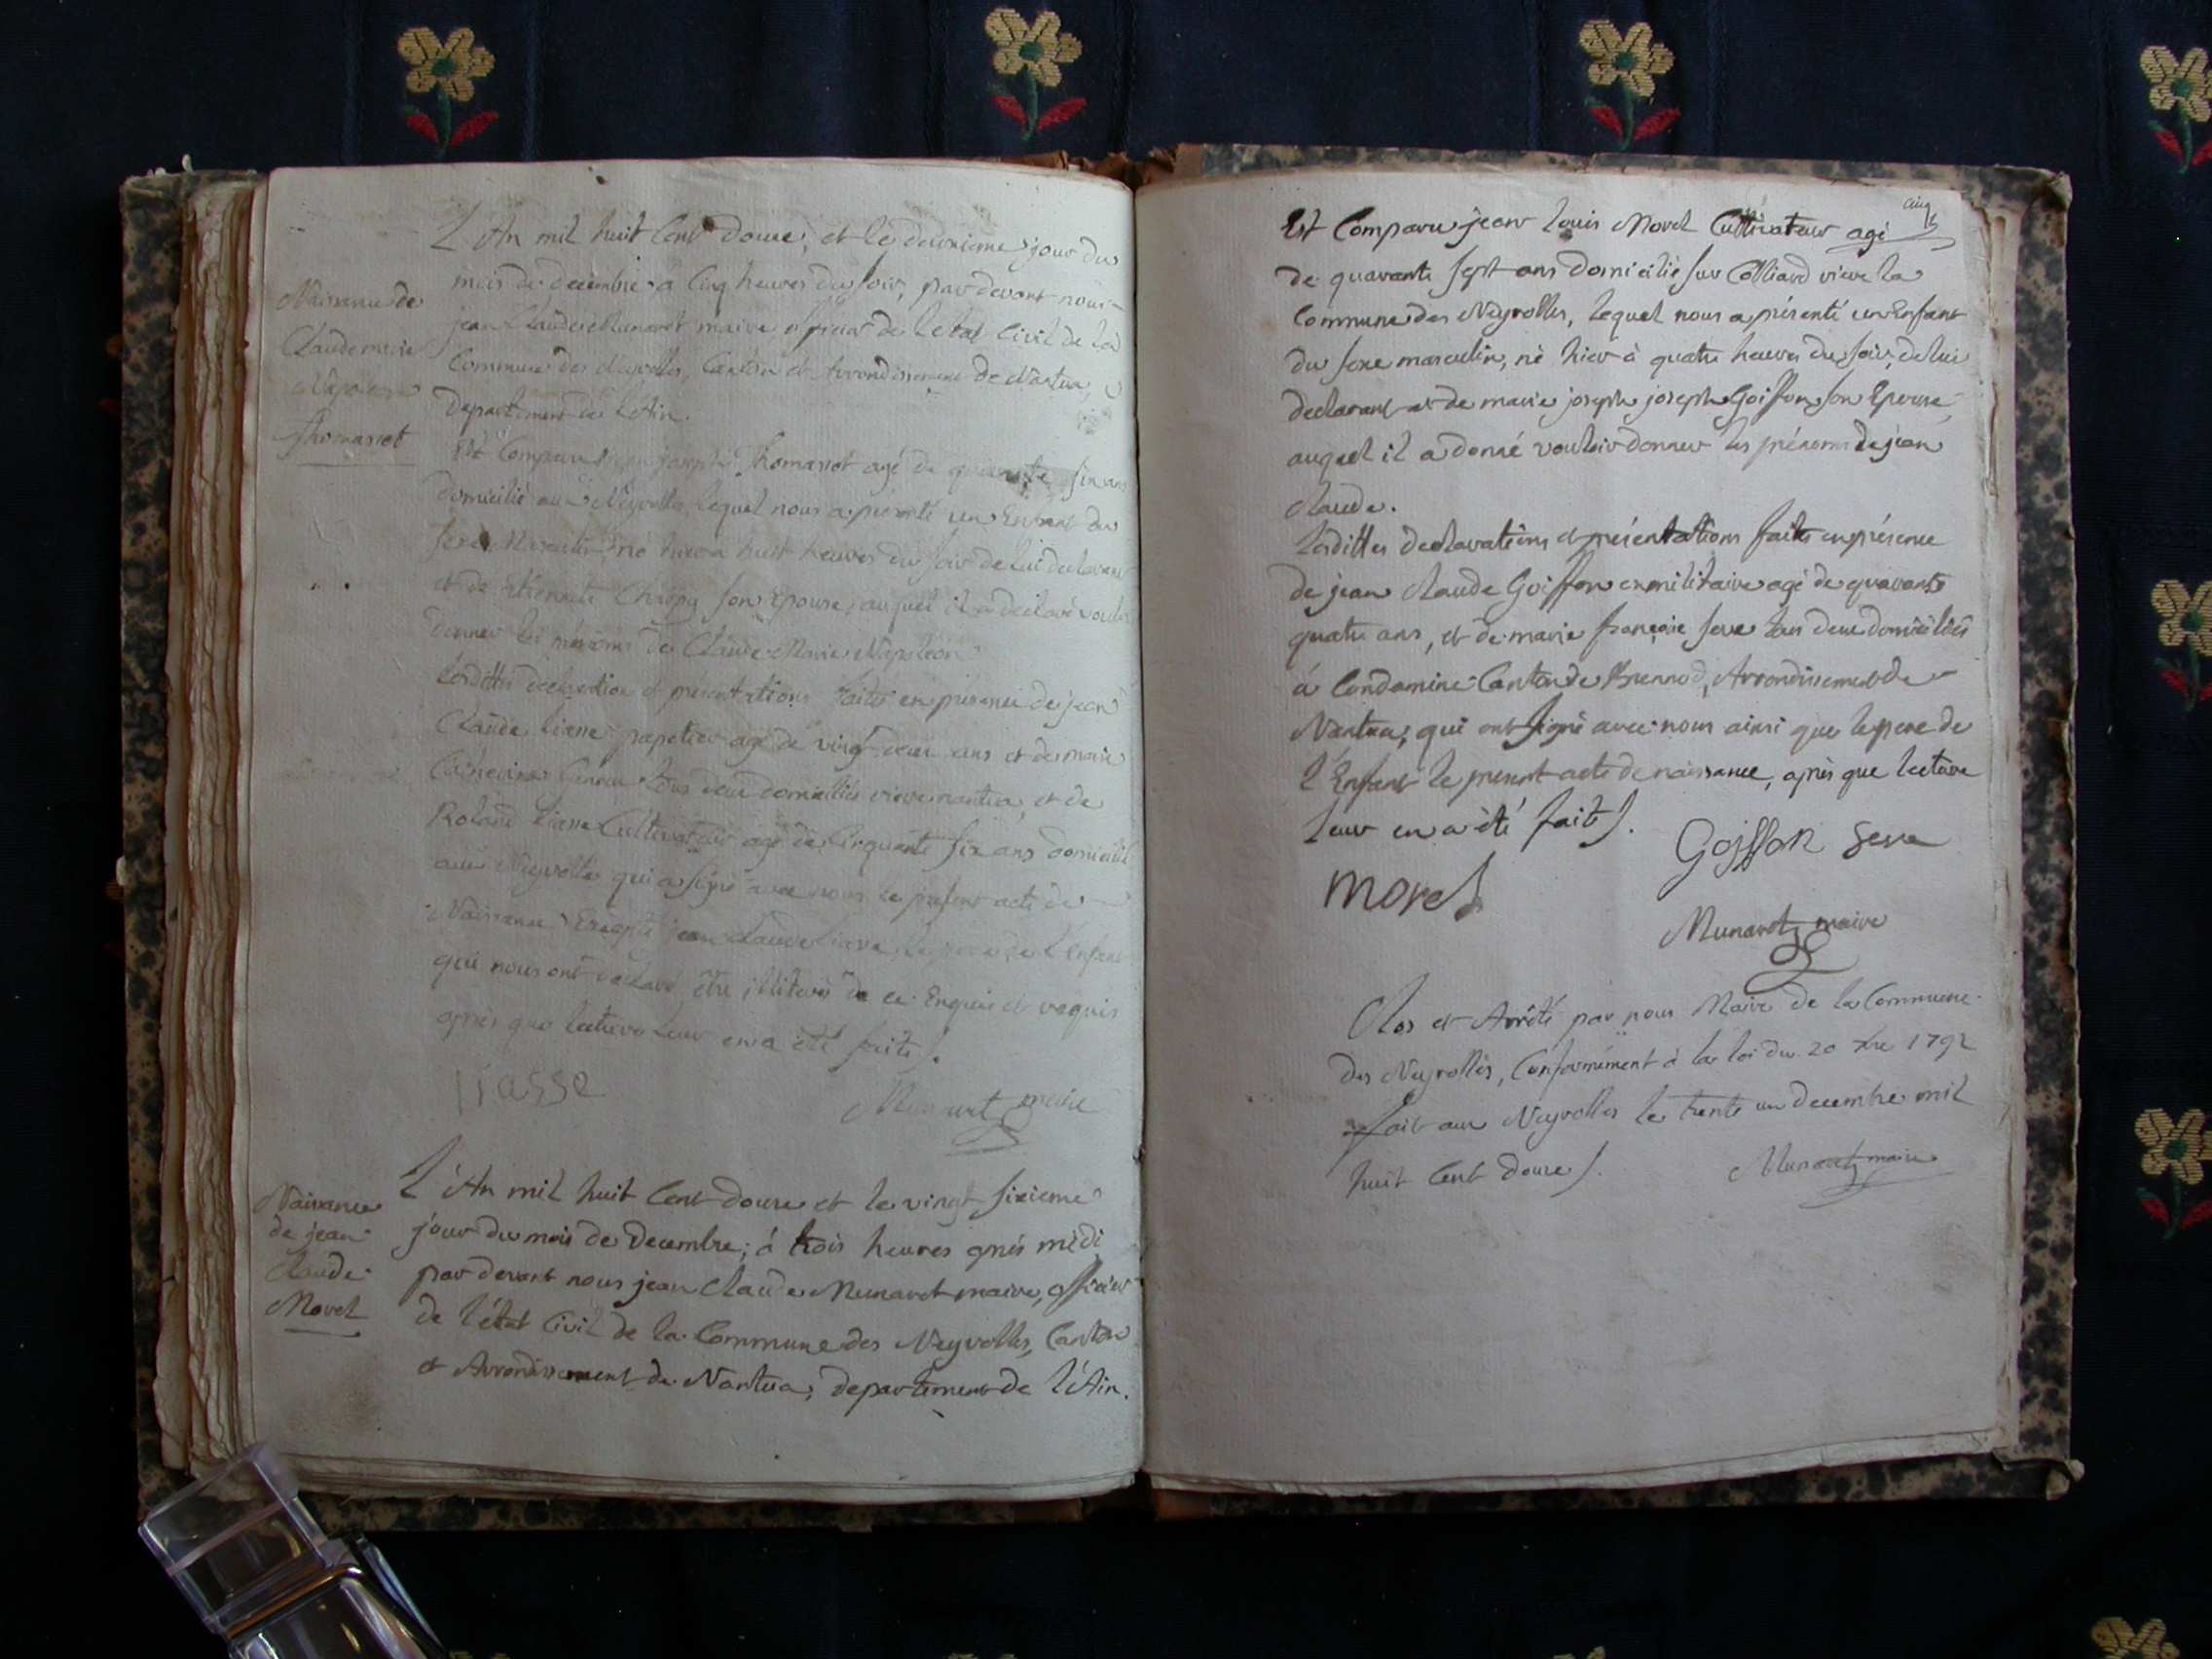 L'An mil huit Cent douze, et le deuxieme jour du
mois de decembre a Cinq heures du soir, par devant nous
jean Claude Munaret maire officier de l'etat Civil de la
Commune des Neyrolles, Canton et Arrondissement de Nantua,
Departement de l'Ain.
Naissance de
Claude marie
Napoleon
Thomasset
Est Comparu joseph Thomasset agé de quarante six ans
domicilié aux Neyrolles lequel nous a présenté un Enfant du
sexe Masculin, né hier a huit heures du soir de lui declarant
et de Etiennette son Epouse, auquel il a declaré vouloir
donner les prénoms de Claude Marie Napoléon
Lesdittes declaration et présentations faites en présence de jean
Claude liasse papetier agé de vingt deux ans et de marie
Catherine tous deux domiciliés nantua, et de
Roland liasse Cultivateur agé de Cinquante six ans domicilié
aux Neyrolles qui a signé avec nous le présent acte de
Naissance Excepté jean Claude liasse, le pere de l'Enfant
qui nous ont déclaré être illiterés de ce Enquis et requis
après que lecture leur en a été faite.
liasse
Munaret maire
Naissance
de jean
Claude
Morel
L'An mil huit Cent douze et le vingt sixieme
jour du mois de Decembre, á trois heures après midi
par devant nous jean Claude Munaret maire, officier
de l'état Civil de la Commune des Neyrolles, Canton
et Arrondissement de Nantua, departement de l'Ain.
cinq
5
Est Comparu jean louis Morel Cultivateur agé
de quarante sept ans domicilié sur Colliard riere la
Commune des Neyrolles, lequel nous a présenté un Enfant
du sexe masculin, né hier à quatre heures du soir, de lui
declarant et de marie joseph joseph Goiffon son Epouse,
auquel il a donné vouloir donner les prénoms de jean
Claude.
Lesdittes declarations et présentations faites en présence
de jean Claude Goiffon exmilitaire agé de quarante
quatre ans, et de marie françoise seve tous deux domiciliés
á Condamine Canton de Brennod, Arrondissement de
Nantua; qui ont signé avec nous ainsi que le pere de
l'Enfant le present acte de naissance, après que lecture
leur en a été faite.
Goiffon seve
morel
Munaret maire
Clos et Arrêté par nous Maire de la Commune
des Neyrolles, Conformément à la loi du 20 7bre 1792
fait aux Neyrolles le trente un decembre mil
huit Cent douze.
Munaret maire